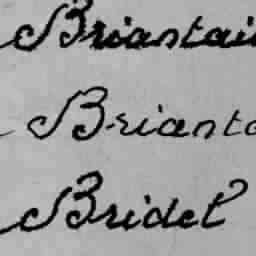 Briantai
Brianta
Bridet